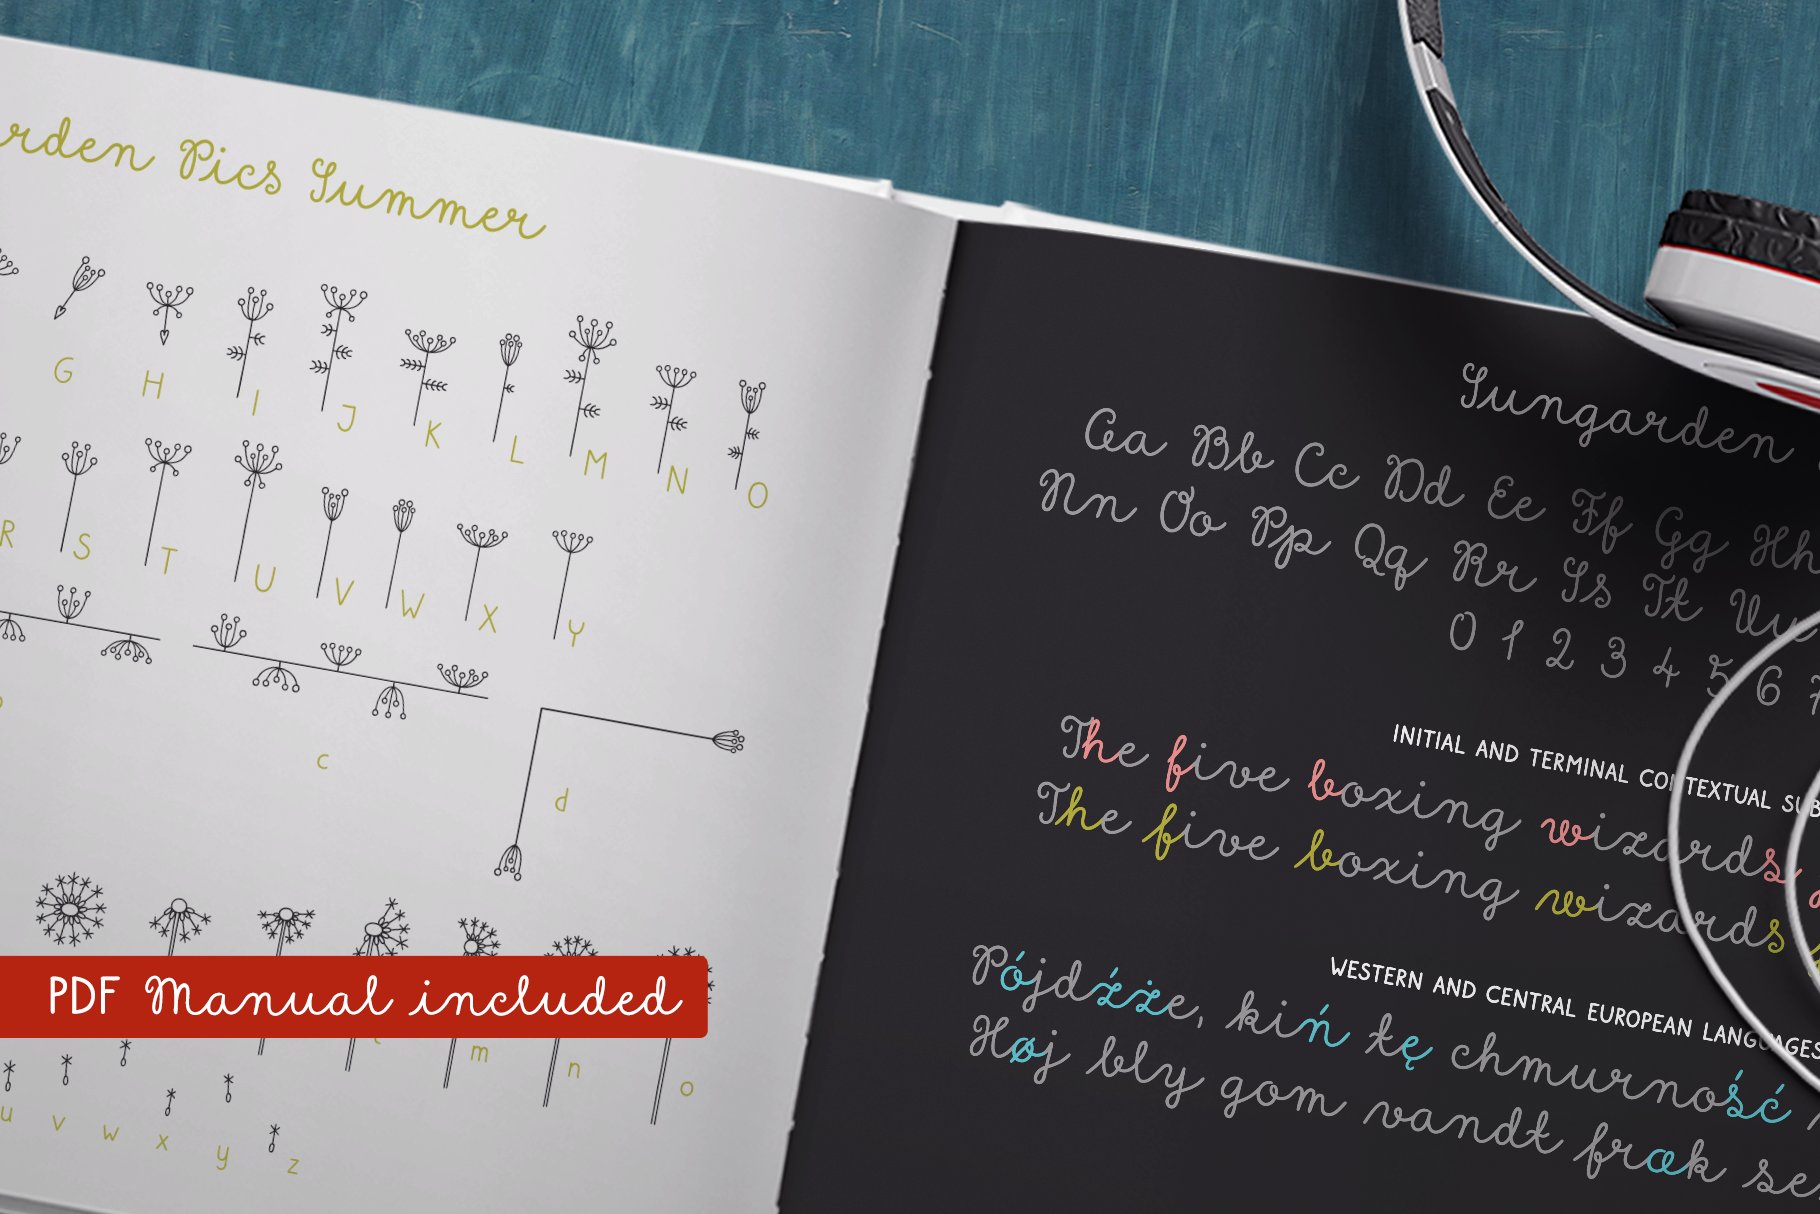 rden Pics Summer
G H I J K L M N O
R S T U V W X Y
c d
PDF Manual included
m n o
u v w x y z
Sungarden
Aa Bb Cc Dd Ee Ff Gg Hh
Nn Oo Pp Qq Rr Ss Tt Uu
0 1 2 3 4 5 6
INITIAL AND TERMINAL CONTEXTUAL SUB
The five boxing wizards
The five boxing wizards
WESTERN AND CENTRAL EUROPEAN LANGUAGES
Pójdźże, kiń tę chmurność
Høj bly gom vandt fræk se